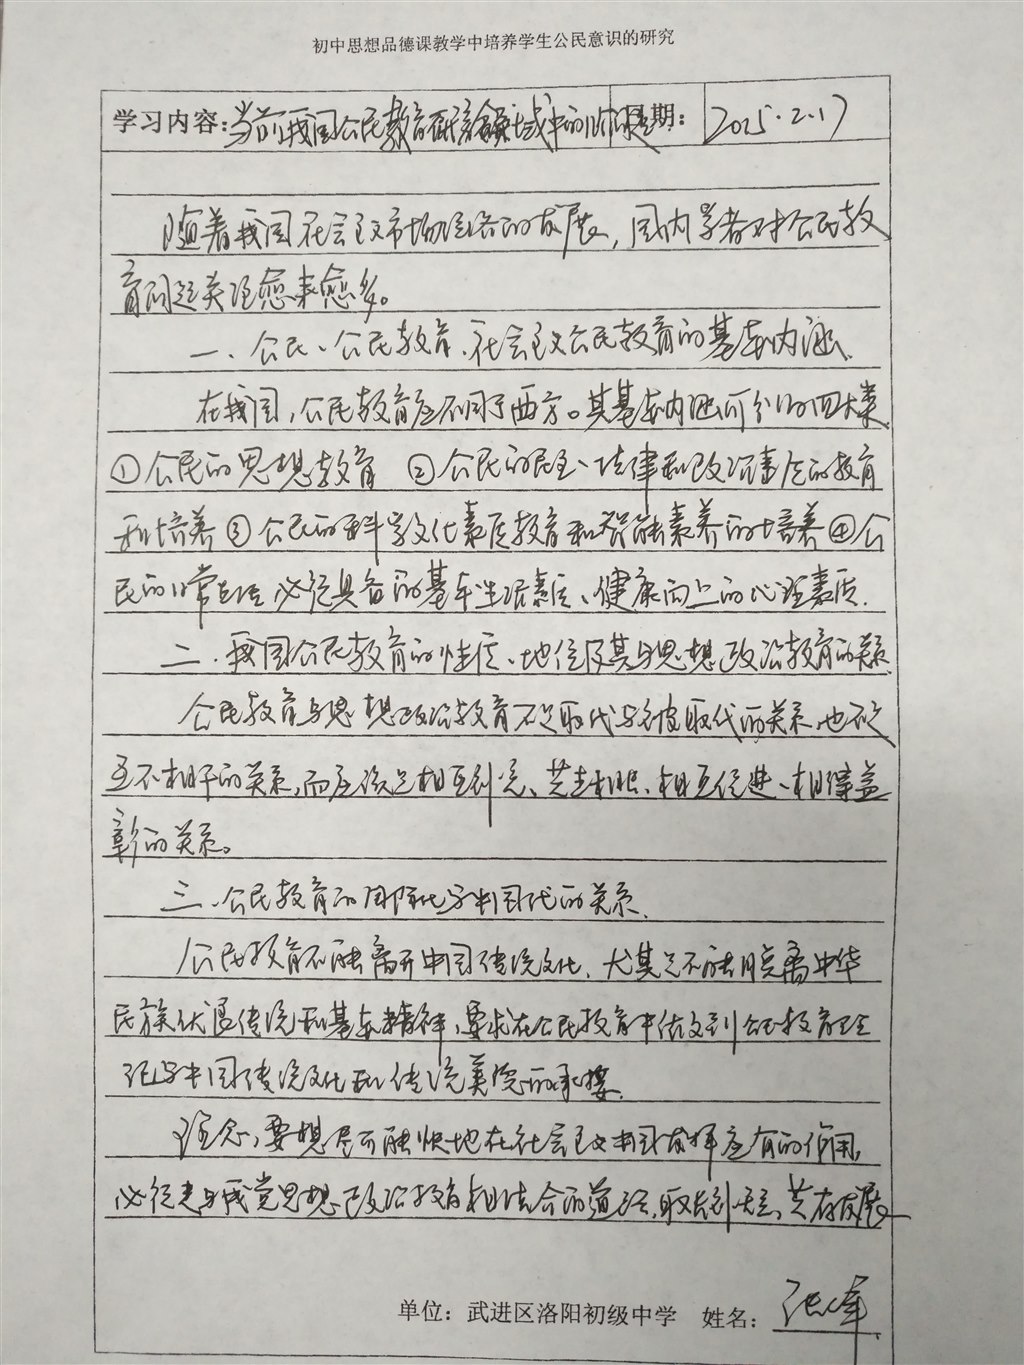 初中思想品德课教学中培养学生公民意识的研究
学习内容：当前我国公民教育研究领域中的问题 日期： 2015.2.17
随着我国社会主义市场经济的发展，国内学者对公民教
育问题关注愈来愈多。
一、公民、公民教育、社会主义公民教育的基本内涵。
在我国，公民教育应不同于西方。其基本内涵可分为四大类
①公民的思想教育 ②公民的民主、法律和政治素质的教育
和培养③公民的科学文化素质教育和智能素养的培养④公
民的日常生活必须具备的基本生活素质、健康向上的心理素质.
二、我国公民教育的性质、地位及其与思想政治教育的关系
公民教育与思想政治教育不是取代与被取代的关系,也不是
互不相干的关系,而应该是相互补充、相互促进、相得益
彰的关系。
三、公民教育的国际化与中国化的关系.
公民教育不能离开中国传统文化、尤其是不能脱离中华
民族优良传统和基本精神,要求在公民教育中做到公民教育理
论与中国传统文化和传统美德的承接.
总之,要想尽可能快地在社会主义中国发挥应有的作用,
必须走与我党思想政治教育相结合的道路,取长补短、共存发展
单位：武进区洛阳初级中学 姓名：